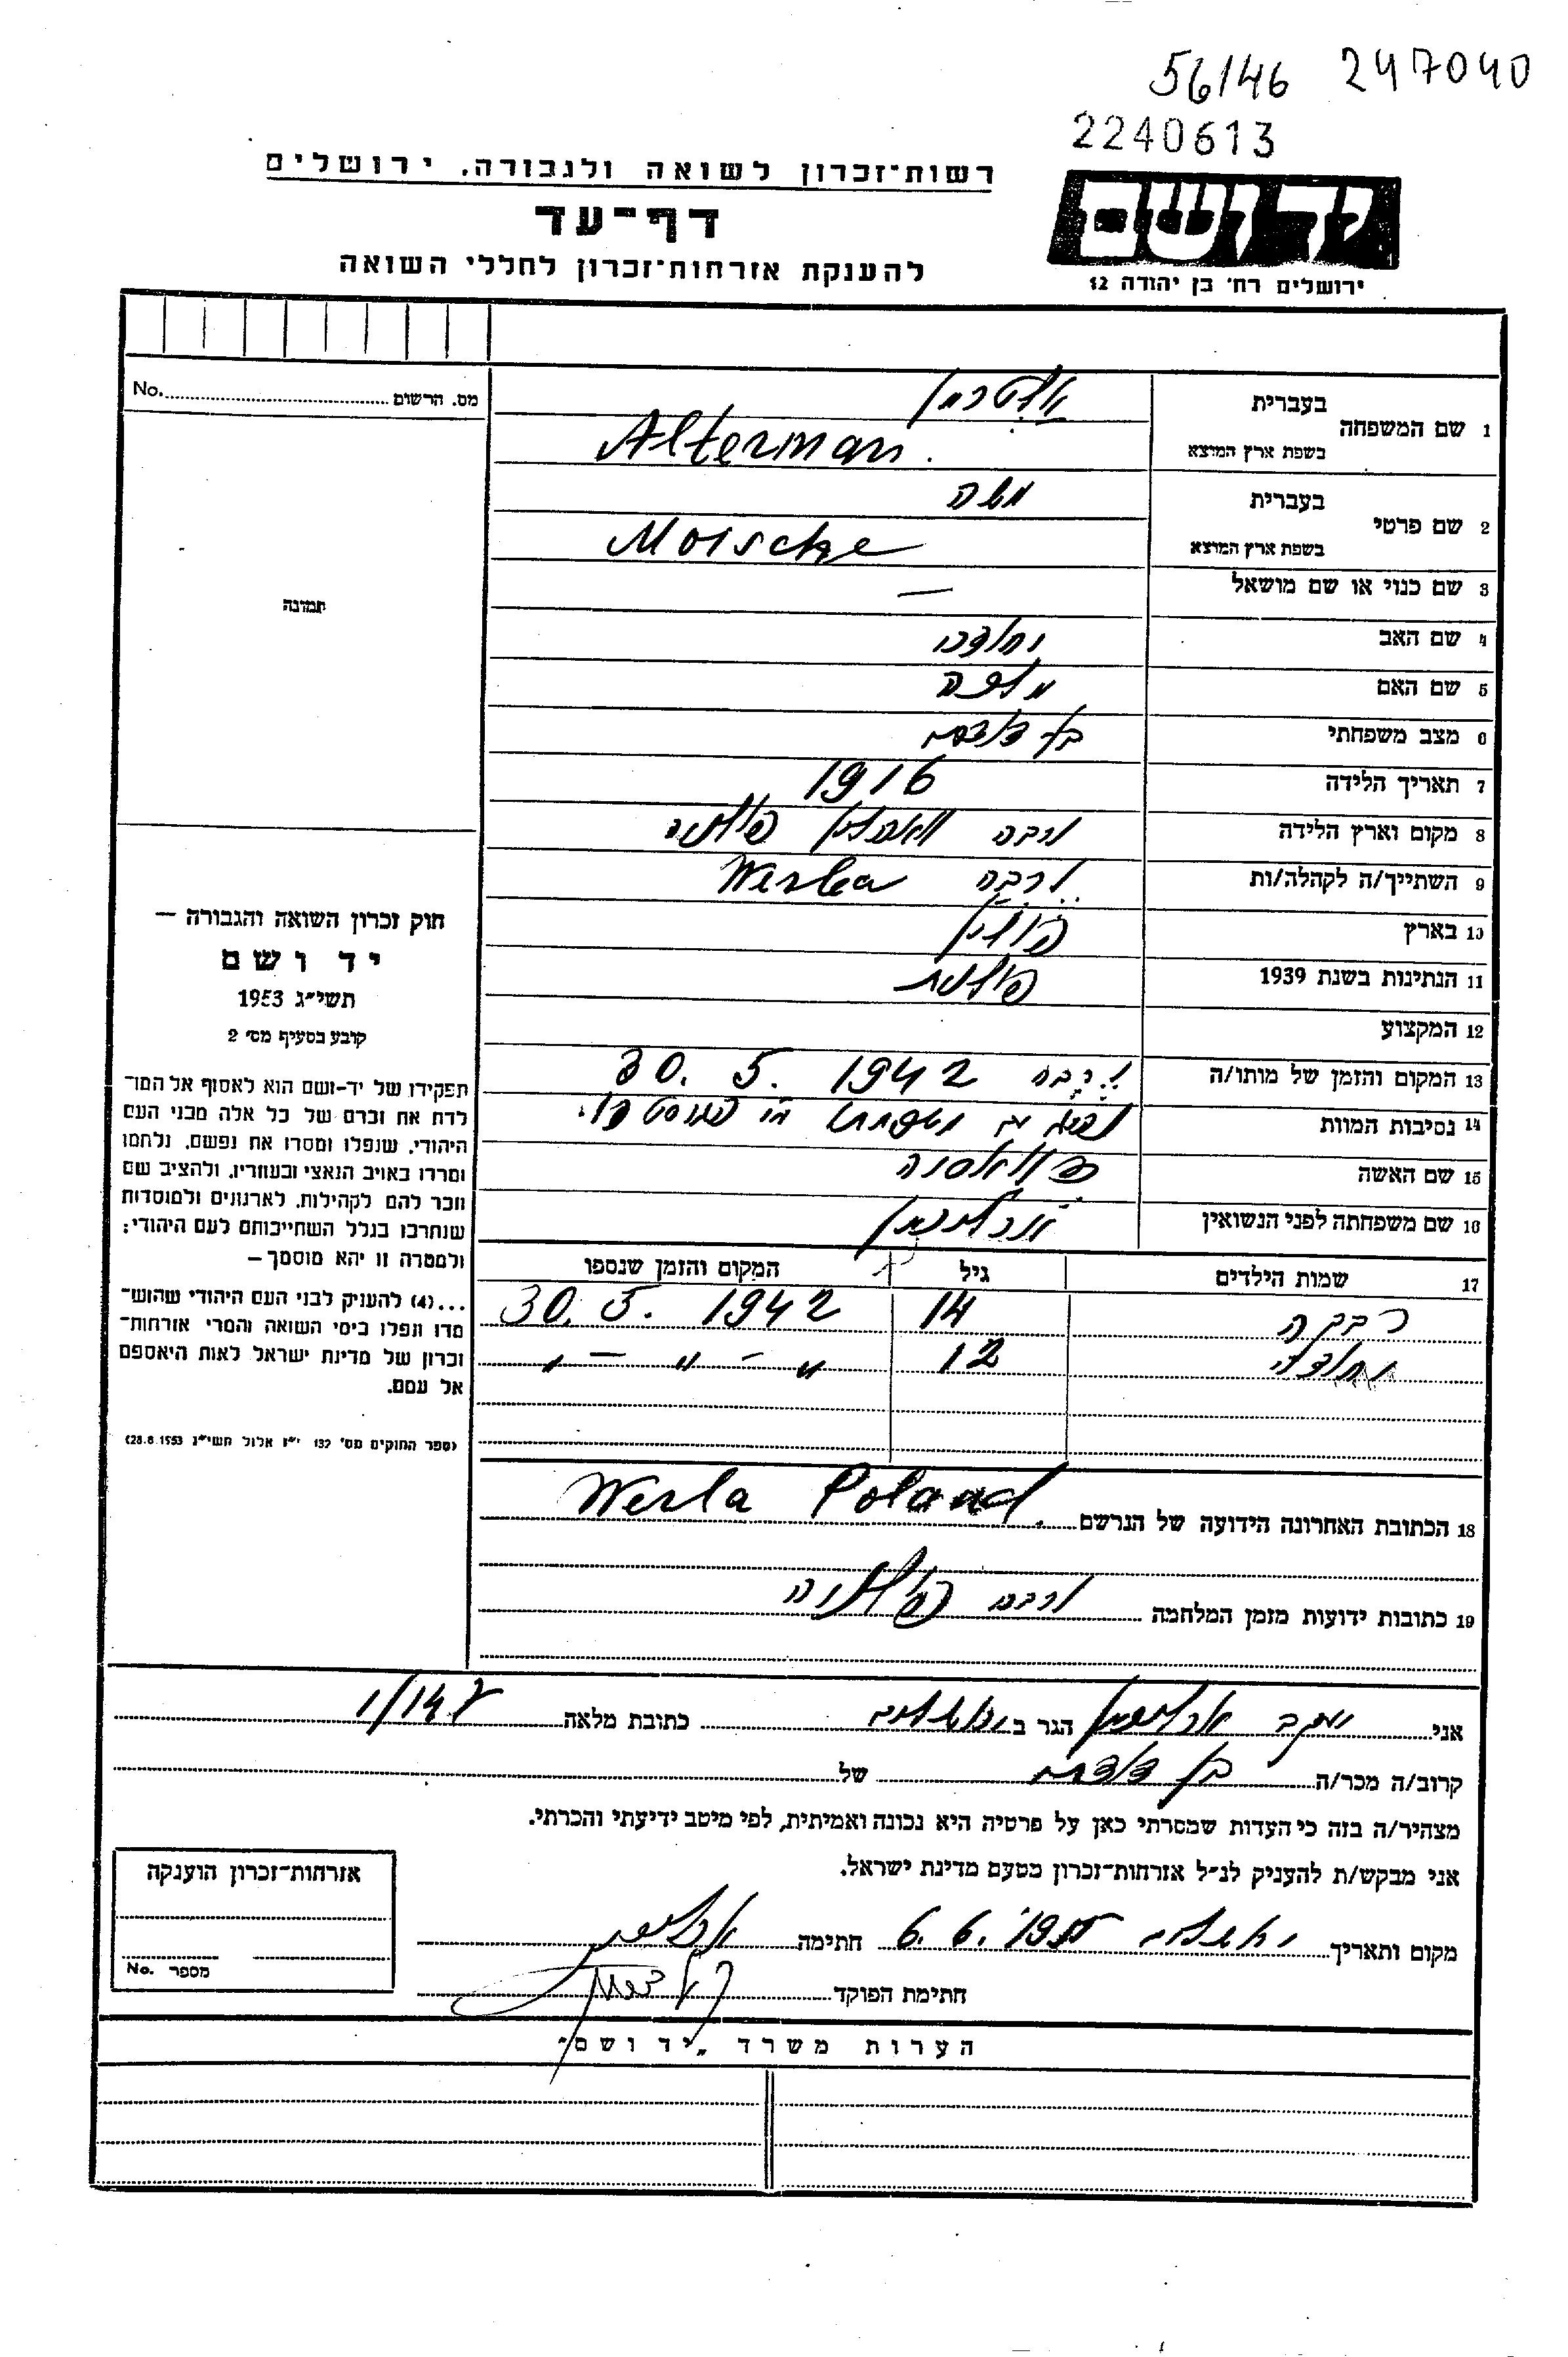 56146 247040
2240613
רשות־זכרון לשואה ולגבורה, ירושלים
דף־עד
להענקת אזרחות־זכרון לחללי השואה
יד ושם
ירושלים רח׳ בן יהודה 12
מס. הרשום No.
1 שם המשפחה בעברית אלטרמן
בשפת ארץ המוצא Alterman.
2 שם פרטי בעברית משה
בשפת ארץ המוצא Moische
3 שם כנוי או שם מושאל —
4 שם האב
5 שם האם
6 מצב משפחתי בן
7 תאריך הלידה 1916
8 מקום וארץ הלידה ורבה
9 השתייך/ה לקהלה/ות ורבה Werba
10 בארץ פולין
11 הנתינות בשנת 1939 פולנית
12 המקצוע
13 המקום והזמן של מותו/ה ורבה 30. 5. 1942
14 נסיבות המוות
15 שם האשה
16 שם משפחתה לפני הנשואין
17 שמות הילדים גיל המקום והזמן שנספו
רבקה 14 30. 5. 1942
12 „ – „ – „
18 הכתובת האחרונה הידועה של הנרשם Werba Poland.
19 כתובות ידועות מזמן המלחמה ורבה
תמונה
חוק זכרון השואה והגבורה —
יד ושם
תשי״ג 1953
קובע בסעיף מס׳ 2
תפקידו של יד-ושם הוא לאסוף אל המו־
לדת את זכרם של כל אלה מבני העם
היהודי, שנפלו ומסרו את נפשם, נלחמו
ומרדו באויב הנאצי ובעוזריו, ולהציב שם
וזכר להם לקהילות, לארגונים ולמוסדות
שנחרבו בגלל השתייכותם לעם היהודי;
ולמטרה זו יהא מוסמך—
...(4) להעניק לבני העם היהודי שהוש־
מדו ונפלו בימי השואה והמרי אזרחות־
זכרון של מדינת ישראל לאות היאספם
אל עמם.
(ספר החוקים מס׳ 132 י״ז אלול תשי״ג 28.8.1953)
אני יעקב הגר ב כתובת מלאה 1/147
קרוב/ה מכר/ה בן של
מצהיר/ה בזה כי העדות שמסרתי כאן על פרטיה היא נכונה ואמיתית, לפי מיטב ידיעתי והכרתי.
אני מבקש/ת להעניק לנ״ל אזרחות־זכרון מטעם מדינת ישראל.
מקום ותאריך 6. 6. חתימה
חתימת הפוקד
אזרחות־זכרון הוענקה
מספר No.
הערות משרד „יד ושם״